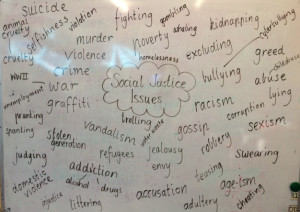 suicide
animal cruelty
violation
fighting
gambling
kidnapping
cyberbullying
selfishness
murder
poverty
stealing
cruelty
violence
homelessness
excluding
greed
crime
bullying
WWII
war
Social Justice
Issues
abuse
unemployment
graffiti
racism
pranking
trolling
corruption
lying
stolen generation
vandalism
gossip
sexism
refugees
jealousy
robbery
judging
envy
swearing
addiction
teasing
domestic violence
alcohol
drugs
accusation
age-ism
injustice
littering
adultery
cheating